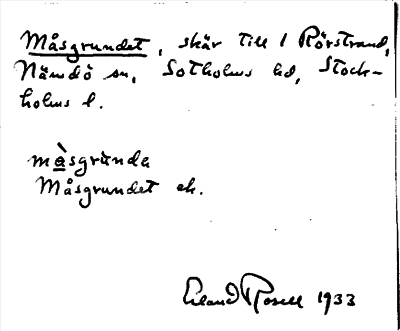 Måsgrundet, skär till 1 Rörstrand,
Nämdö sn, Sotholms hd, Stock-
holms l.
måsgrùnda
Måsgrundet ek.
Erland Rosell 1933